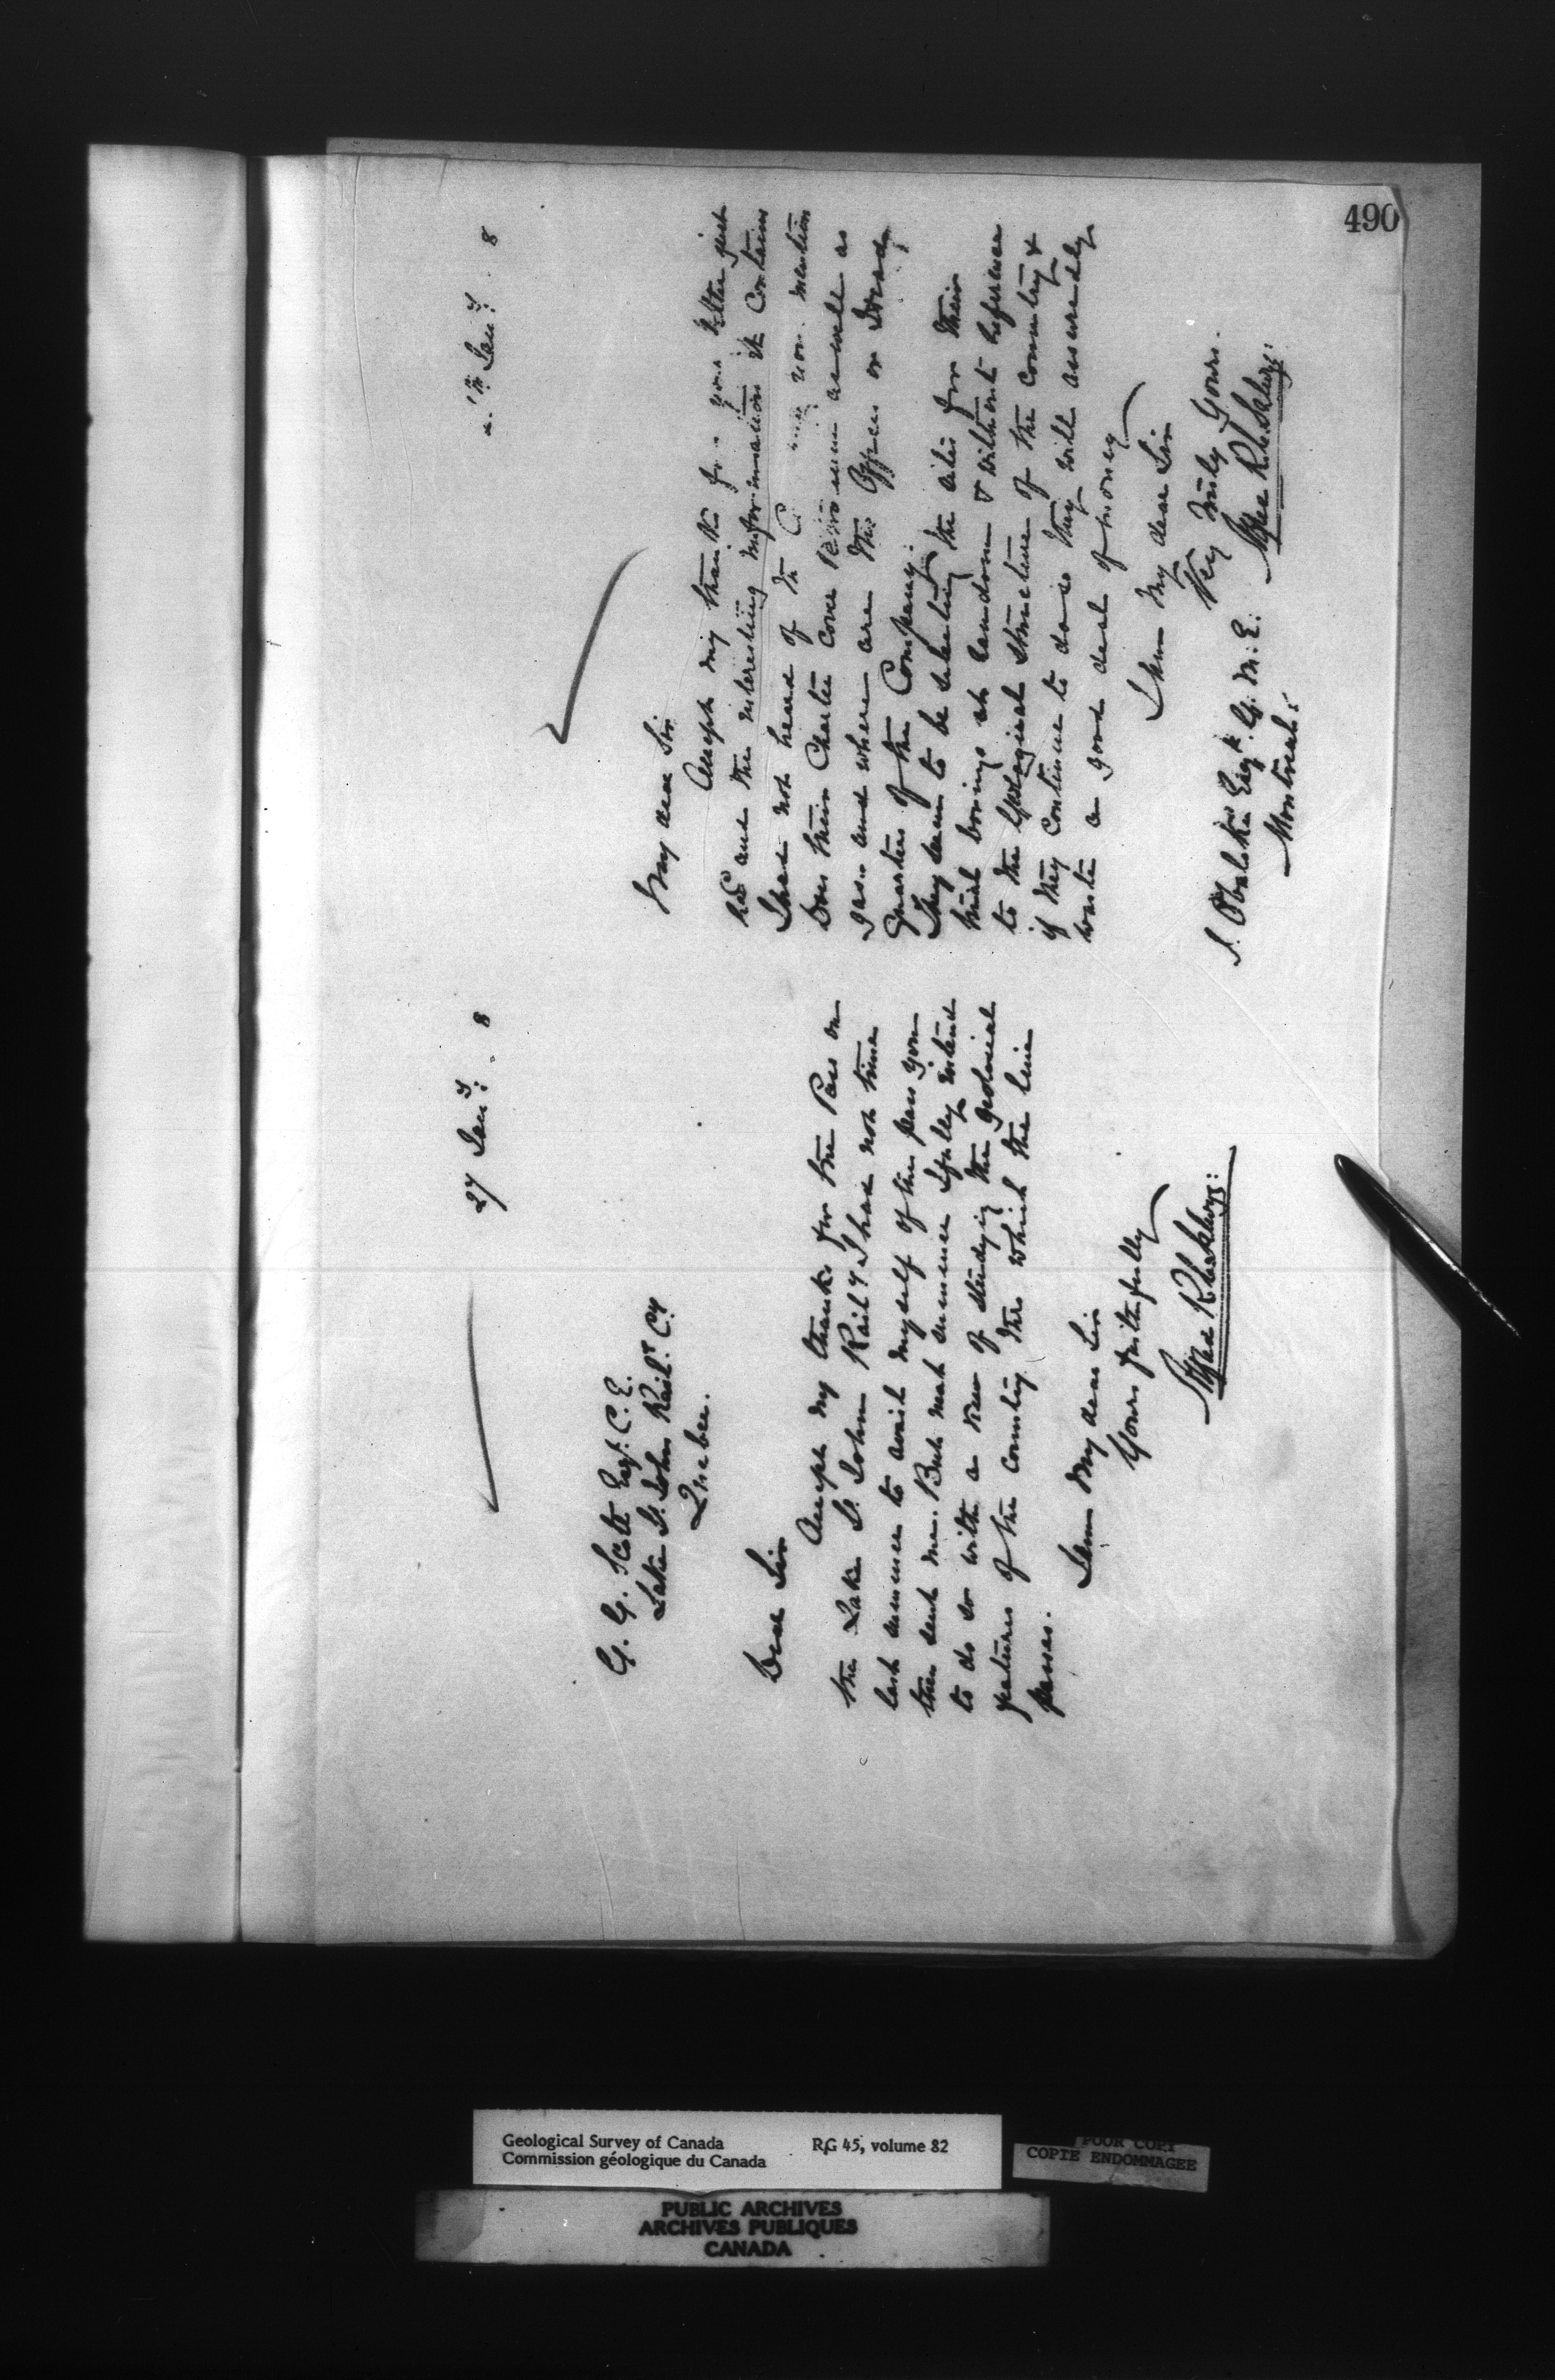 490
27 Jany. 8
G. G. Scott Esqr. C. E.
Lake St. John Railr. Cy
Quebec.
Dear Sir
Accept my thanks for the Pass on
the Lake St. John Raily I had not time
last summer to avail myself of the pass you
then sent me. But next summer I fully intend
to do so with a view of studying the geolocial
features of the country thro which the line
passes.
I am my dear Sir
Yours faithfully
Alfred R. C. Selwyn
Jany. 8
My dear Sir
Accept my thanks for your letter just
recd and the interesting information it contains
I had not heard of the you mention
Does their Charter cover as well as
gas and where are the Offices or Head
Quarters of the Company.
They seem to be selecting the sites for their
trial borings at random & without reference
to the Geological structure of the country &
if they continue to do so they will assuredly
waste a good deal of money
I am my dear Sir
Very truly Yours.
Alfred R. C. Selwyn
J. Obalski Esqr. G. M. E.
Montreal.
Geological Survey of Canada RG 45, volume 82
Commission géologique du Canada
POOR COPY
COPIE ENDOMMAGEE
PUBLIC ARCHIVES
ARCHIVES PUBLIQUES
CANADA